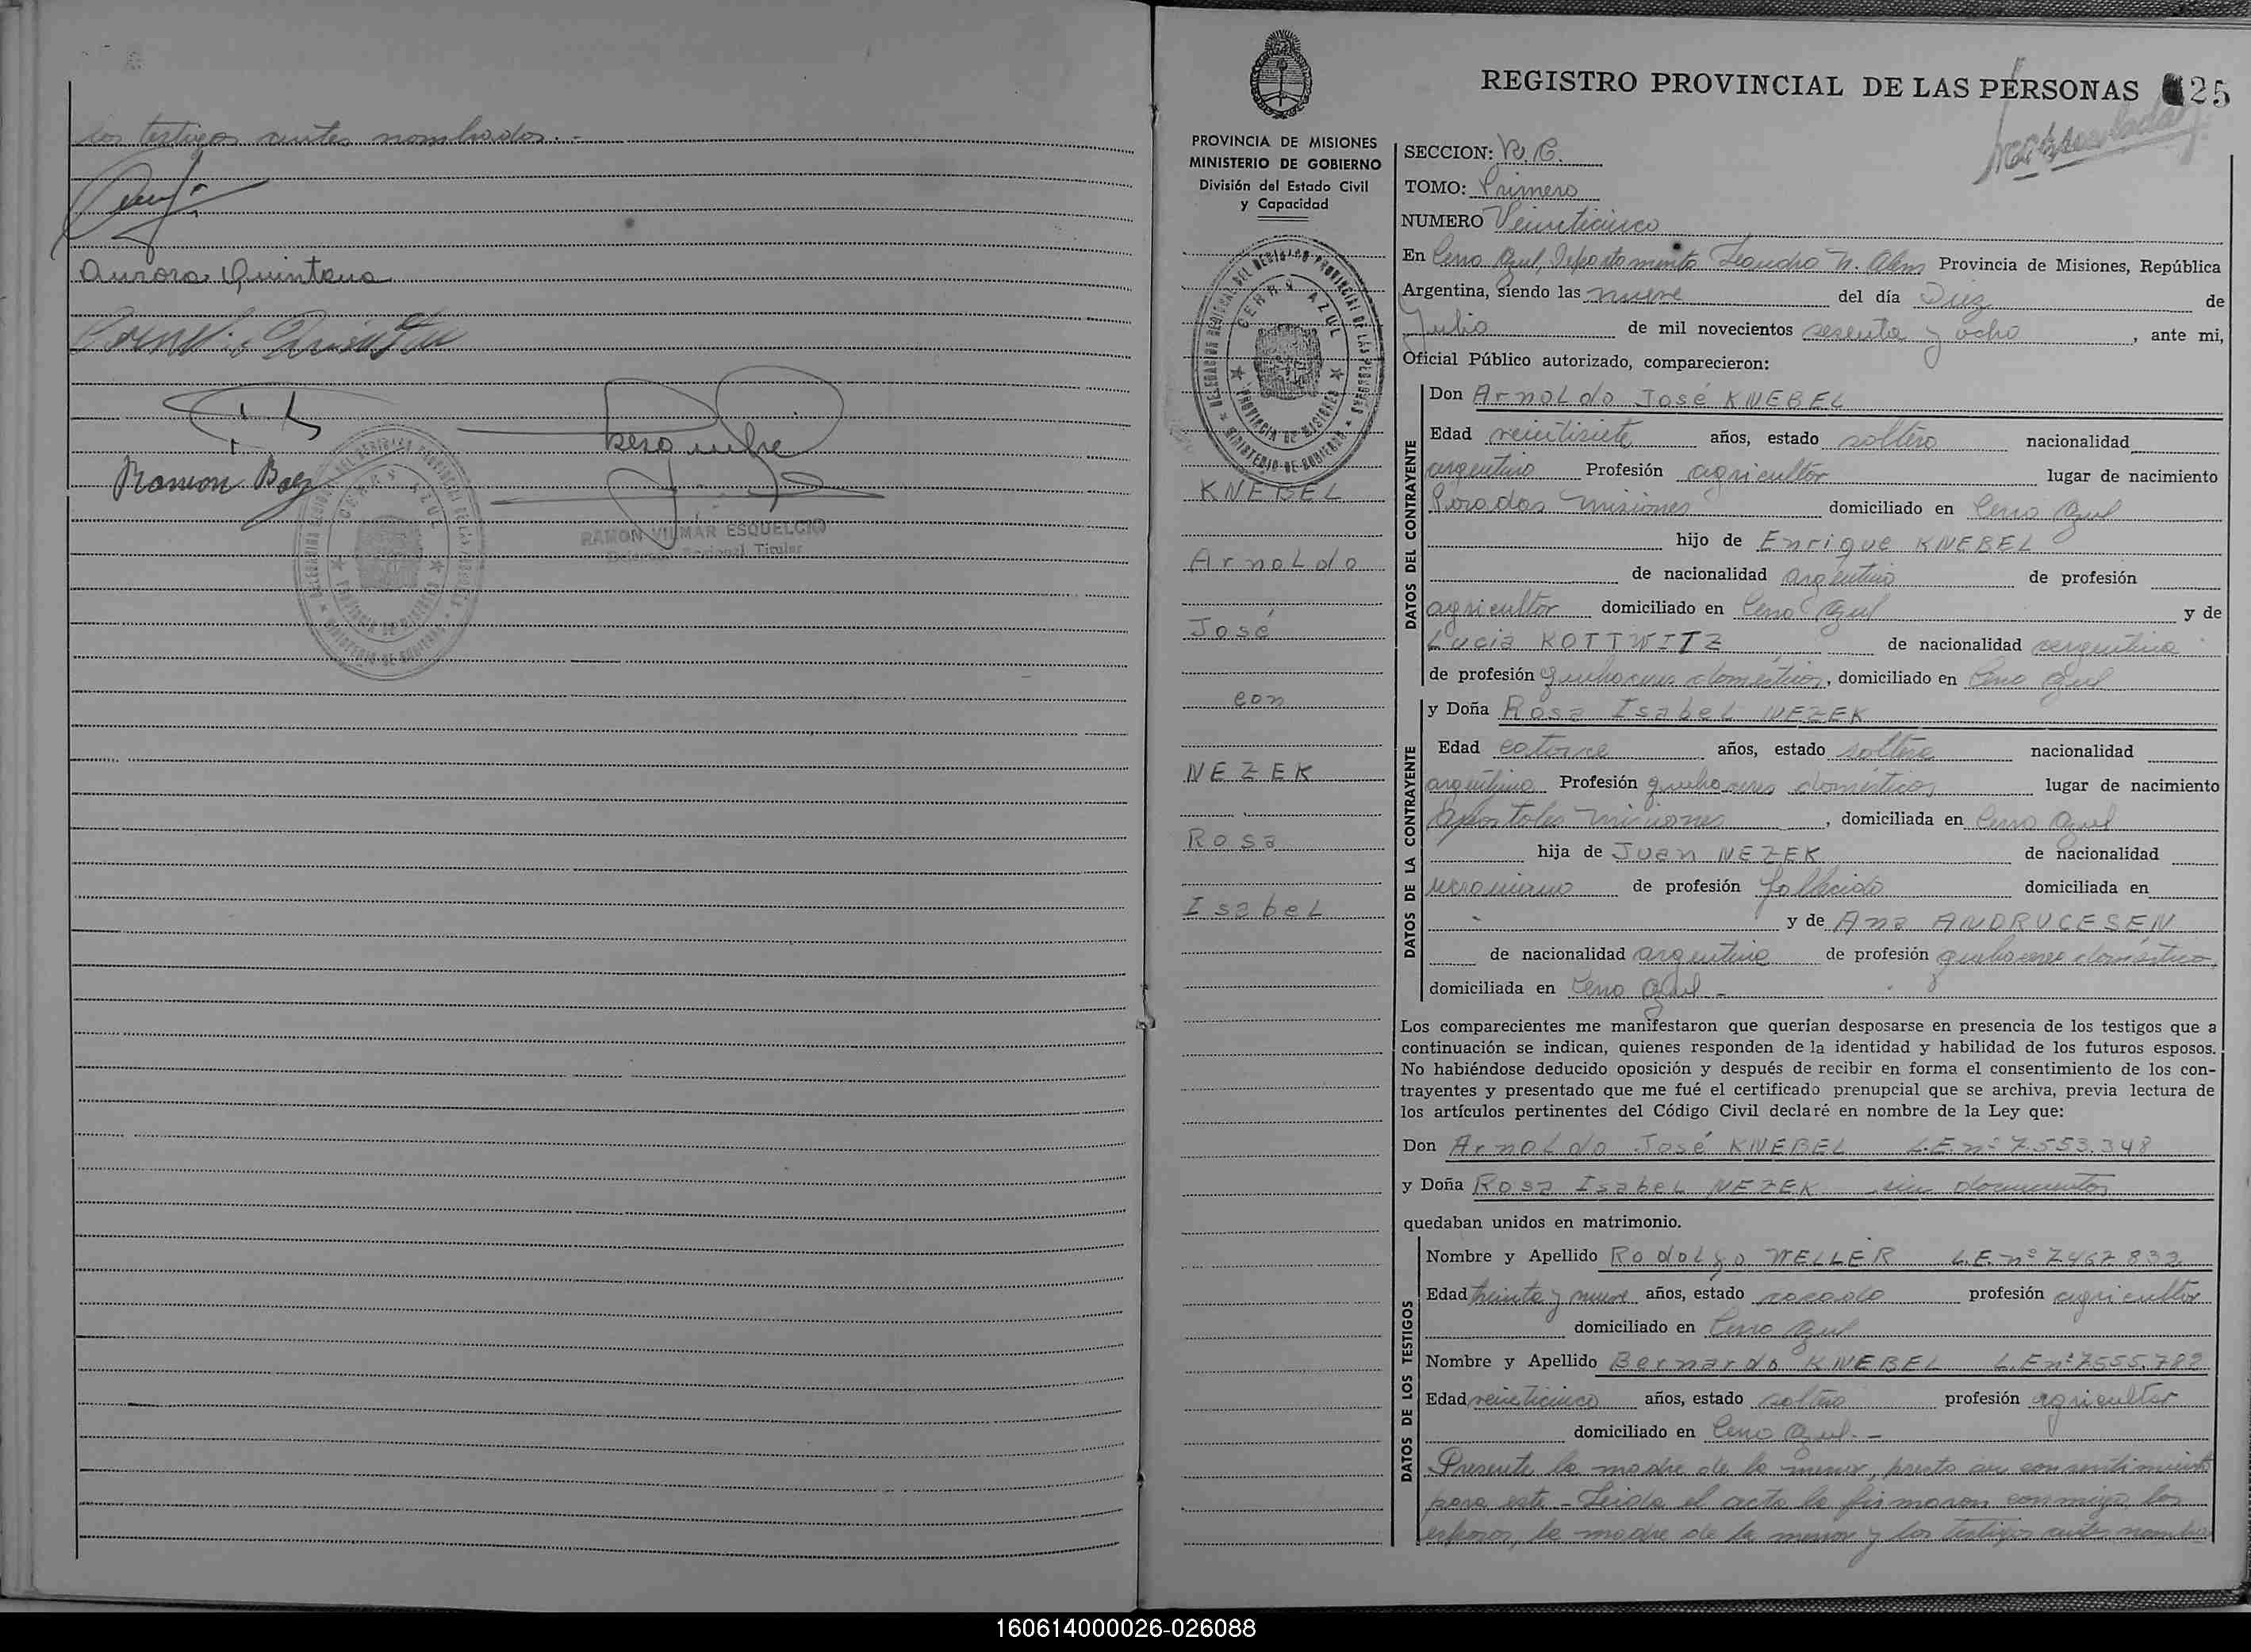 los testigos antes nombrados.-
Aurora Quintana
Ramon Baez
RAMON VILMAR ESQUELCIO
Delegado Regional Titular
REGISTRO PROVINCIAL DE LAS PERSONAS 25
PROVINCIA DE MISIONES
MINISTERIO DE GOBIERNO
División del Estado Civil
y Capacidad
DELEGACION REGIONAL DEL REGISTRO PROVINCIAL DE LAS PERSONAS
CERRO AZUL
PROVINCIA DE MISIONES
MINISTERIO DE GOBIERNO
KNEBEL
Arnoldo
José
con
NEZEK
Rosa
Isabel
SECCION:
TOMO: Primero
NUMERO Veinticinco
En Cerro Azul, Departamento Leandro N. Alem Provincia de Misiones, República
Argentina, siendo las nueve del día Diez de
Julio de mil novecientos sesenta y ocho, ante mi,
Oficial Público autorizado, comparecieron:
DATOS DEL CONTRAYENTE
Don Arnoldo José KNEBEL
Edad veintisiete años, estado soltero nacionalidad
argentino Profesión agricultor lugar de nacimiento
Posadas Misiones domiciliado en Cerro Azul
hijo de Enrique KNEBEL
de nacionalidad argentino de profesión
agricultor domiciliado en Cerro Azul y de
Lucia KOTTWITZ de nacionalidad argentina
de profesión quehaceres domésticos, domiciliado en Cerro Azul
DATOS DE LA CONTRAYENTE
y Doña Rosa Isabel NEZEK
Edad catorce años, estado soltera nacionalidad
argentina Profesión quehaceres domésticos lugar de nacimiento
Apóstoles Misiones, domiciliada en Cerro Azul
hija de Juan NEZEK de nacionalidad
ucraniano de profesión fallecido domiciliada en
- y de Ana ANDRUCESEN
de nacionalidad argentina de profesión quehaceres domésticos
domiciliada en Cerro Azul -
Los comparecientes me manifestaron que querían desposarse en presencia de los testigos que a
continuación se indican, quienes responden de la identidad y habilidad de los futuros esposos.
No habiéndose deducido oposición y después de recibir en forma el consentimiento de los con-
trayentes y presentado que me fué el certificado prenupcial que se archiva, previa lectura de
los artículos pertinentes del Código Civil declaré en nombre de la Ley que:
Don Arnoldo José KNEBEL L.E. nº 7.553.348
y Doña Rosa Isabel NEZEK sin documentos
quedaban unidos en matrimonio.
DATOS DE LOS TESTIGOS
Nombre y Apellido Rodolfo WELLER L.E. nº 7467832
Edad treinta y nueve años, estado casado profesión agricultor
domiciliado en Cerro Azul
Nombre y Apellido Bernardo KNEBEL L.E nº 7555.789
Edad veinticinco años, estado soltero profesión agricultor
domiciliado en Cerro Azul.-
Presente la madre de la menor, presta su consentimiento
para este - Leida el acta la firmaron conmigo los
esposos, la madre de la menor y los testigos antes nombra
160614000026-026088